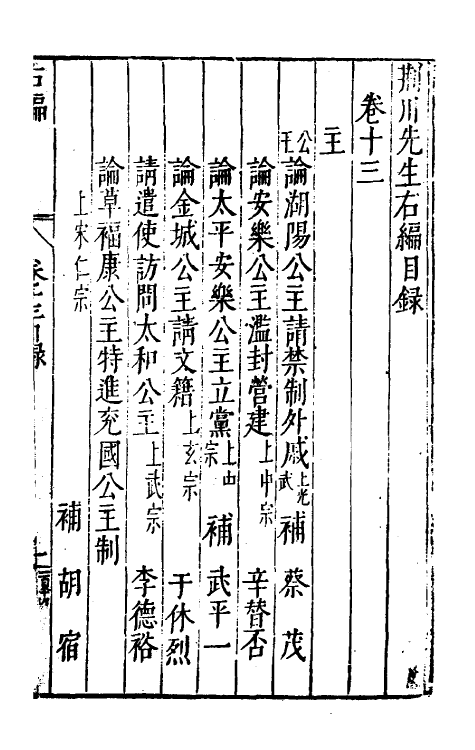 荆川先生右編目録
卷十三
主
公主論湖陽公主請禁制外戚上光武 補 蔡茂
論安樂公主濫封營建上中宗 辛替否
論太平安樂公主立黨上中宗 補 武平一
論金城公主請文籍上玄宗 于休烈
請遣使訪問太和公主上武宗 李德裕
論草福康公主特進充國公主制
上宋仁宗 補 胡宿
右編
卷十三目録